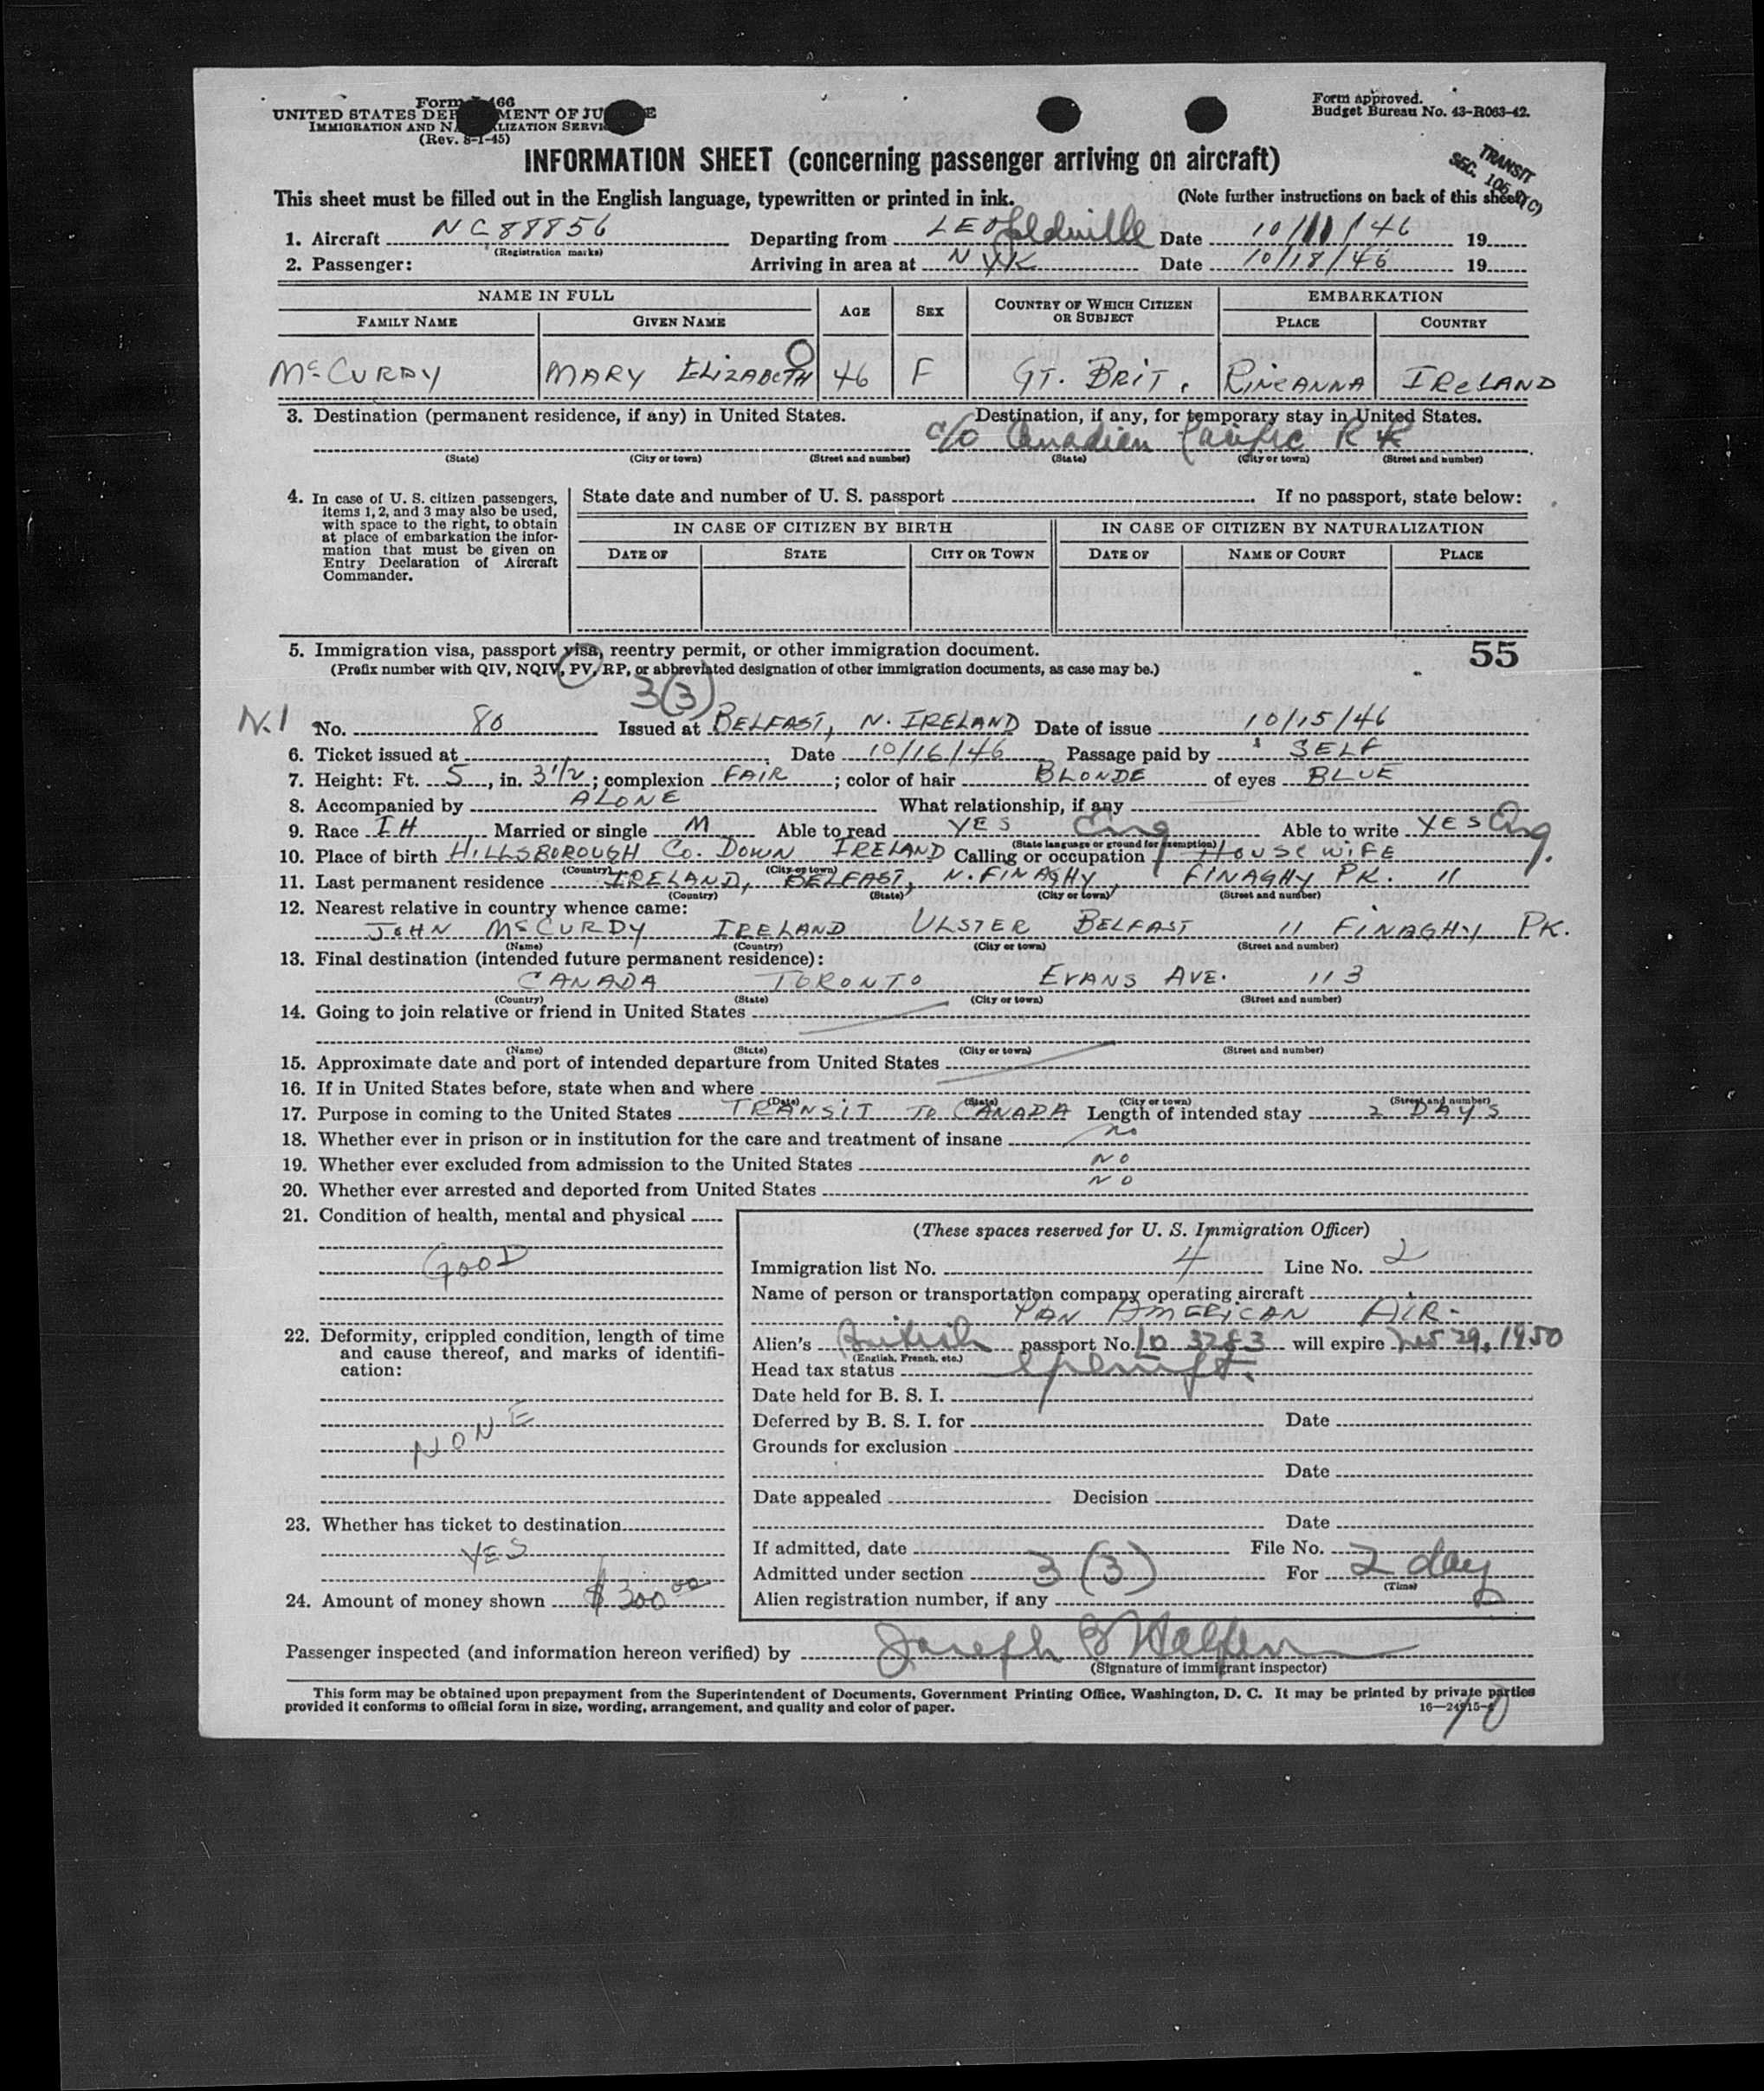 Form 466
UNITED STATES DEPARTMENT OF JUSTICE
IMMIGRATION AND NATURALIZATION SERVICE
(Rev. 8-1-45)
Form approved.
Budget Bureau No. 43-R063-42.
INFORMATION SHEET (concerning passenger arriving on aircraft)
TRANSIT
SEC. 106.
This sheet must be filled out in the English language, typewritten or printed in ink. (Note further instructions on back of this sheet)
1. Aircraft NC88856 Departing from LEOpoldville Date 10/ /46 19
(Registration marks)
2. Passenger: Arriving in area at N YK Date 10/18/46 19
NAME IN FULL AGE SEX COUNTRY OF WHICH CITIZEN OR SUBJECT EMBARKATION
FAMILY NAME GIVEN NAME PLACE COUNTRY
McCURDY MARY ELIZABETH 46 F GT. BRIT. RINEANNA IRELAND
3. Destination (permanent residence, if any) in United States. Destination, if any, for temporary stay in United States.
c/o Canadian Pacific R R
(State) (City or town) (Street and number) (State) (City or town) (Street and number)
4. In case of U. S. citizen passengers, items 1, 2, and 3 may also be used, with space to the right, to obtain at place of embarkation the information that must be given on Entry Declaration of Aircraft Commander.
State date and number of U. S. passport If no passport, state below:
IN CASE OF CITIZEN BY BIRTH IN CASE OF CITIZEN BY NATURALIZATION
DATE OF STATE CITY OR TOWN DATE OF NAME OF COURT PLACE
5. Immigration visa, passport visa, reentry permit, or other immigration document. 55
(Prefix number with QIV, NQIV, PV, RP, or abbreviated designation of other immigration documents, as case may be.)
3(3)
N.I No. 80 Issued at BELFAST, N. IRELAND Date of issue 10/15/46
6. Ticket issued at Date 10/16/46 Passage paid by SELF
7. Height: Ft. 5, in. 3 1/2; complexion FAIR; color of hair BLONDE of eyes BLUE
8. Accompanied by ALONE What relationship, if any
9. Race IH Married or single M Able to read YES Eng Able to write YES Eng.
(State language or ground for exemption)
10. Place of birth HILLSBOROUGH Co. DOWN IRELAND Calling or occupation HOUSEWIFE
(Country) (City or town)
11. Last permanent residence IRELAND, BELFAST, N. FINAGHY, FINAGHY PK. 11
(Country) (State) (City or town) (Street and number)
12. Nearest relative in country whence came:
JOHN McCURDY IRELAND ULSTER BELFAST 11 FINAGHY PK.
(Name) (Country) (City or town) (Street and number)
13. Final destination (intended future permanent residence):
CANADA TORONTO EVANS AVE. 113
(Country) (State) (City or town) (Street and number)
14. Going to join relative or friend in United States
(Name) (State) (City or town) (Street and number)
15. Approximate date and port of intended departure from United States
16. If in United States before, state when and where
(Date) (State) (City or town) (Street and number)
17. Purpose in coming to the United States TRANSIT TO CANADA Length of intended stay 2 DAYS
18. Whether ever in prison or in institution for the care and treatment of insane No
19. Whether ever excluded from admission to the United States NO
20. Whether ever arrested and deported from United States NO
21. Condition of health, mental and physical
GOOD
22. Deformity, crippled condition, length of time and cause thereof, and marks of identification:
NONE
23. Whether has ticket to destination
YES
24. Amount of money shown $300.00
(These spaces reserved for U. S. Immigration Officer)
Immigration list No. 4 Line No. 2
Name of person or transportation company operating aircraft
PAN AMERICAN AIR.
Alien's British passport No. LO 3283 will expire 29, 1950
(English, French, etc.)
Head tax status exempt.
Date held for B. S. I.
Deferred by B. S. I. for Date
Grounds for exclusion
Date
Date appealed Decision
Date
If admitted, date File No.
Admitted under section 3 (3) For 2 days
(Time)
Alien registration number, if any
Passenger inspected (and information hereon verified) by Joseph B Halpern
(Signature of immigrant inspector)
This form may be obtained upon prepayment from the Superintendent of Documents, Government Printing Office, Washington, D. C. It may be printed by private parties
provided it conforms to official form in size, wording, arrangement, and quality and color of paper.